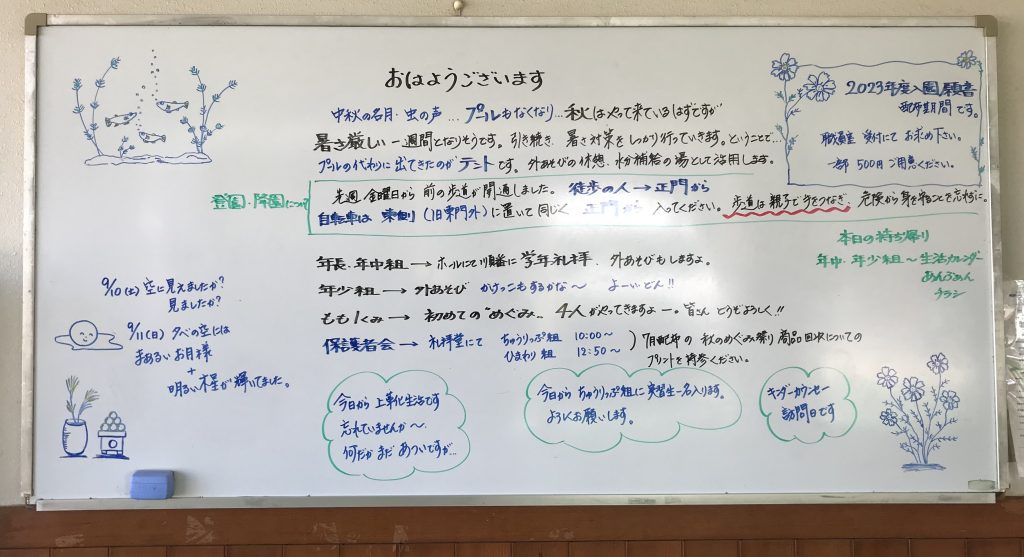 おはようございます
中秋の名月・虫の声…プールもなくなり…秋はやって来ているはずですが
暑さ厳しい一週間となりそうです。引き続き、暑さ対策をしっかり行っていきます。ということで…
プールの代わりに出てきたのがテントです。外あそびの休憩、水分補給の場として活用します。
2023年度入園願書
配布期間です。
職員室受付にてお求め下さい。
一部500円ご用意ください。
登園・降園について
先週金曜日から前の歩道が開通しました。徒歩の人→正門から
自転車は東側(旧東門外)に置いて同じく正門から入ってください。歩道は親子で手をつなぎ、危険から身を守ることを忘れずに。
本日の持ち帰り
年中・年少組〜生活カレンダー
チラシ
年長・年中組→ホールにて順番に学年礼拝、外あそびもしますよ。
年少組→外あそび かけっこもするかな〜 よーいどん!!
もも1くみ→初めての"めぐみ" 4人がやってきますよー。皆さんどうぞよろしく!!
保護者会→礼拝堂にて ちゅうりっぷ組 10:00〜
ひまわり組 12:50〜
7月配布の秋のめぐみ祭り商品回収についての
プリントを持参ください。
9/10(土)空に見えましたか?
見ましたか?
9/11(日)夕べの空には
まあるいお月様
+
明るい木星が輝いてました。
今日から上靴生活です
忘れていませんか〜
何だかまだあついですが…
今日からちゅうりっぷ組に実習生一名入ります。
よろしくお願いします。
キンダーカウンセラー
訪問日です